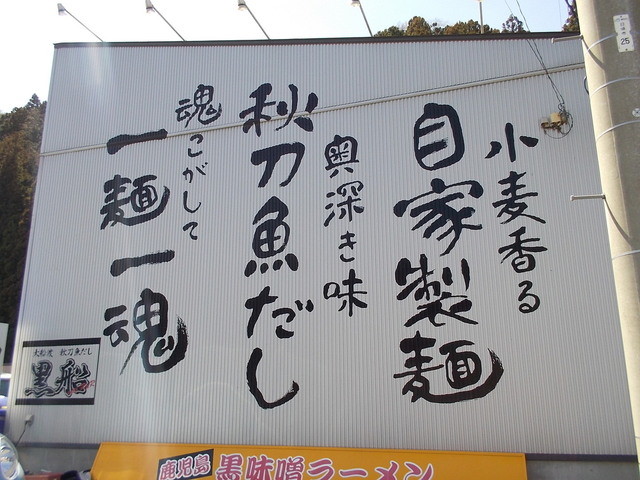 小麦香る
自家製麺
奥深き味
秋刀魚だし
魂こがして
一麺一魂
大船渡 秋刀魚だし
黒船
鹿児島 黒味噌ラーメン
25